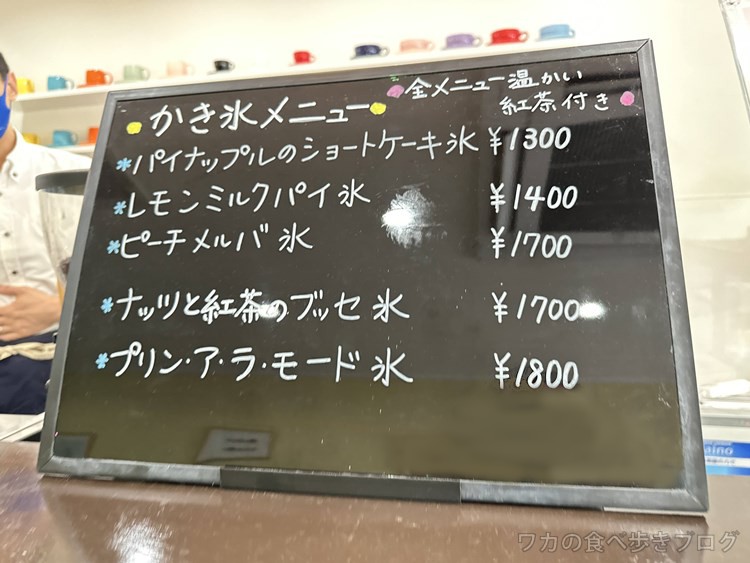 かき氷メニュー
全メニュー温かい
紅茶付き
*パイナップルのショートケーキ氷 ¥1300
*レモンミルクパイ氷 ¥1400
*ピーチメルバ氷 ¥1700
*ナッツと紅茶のブッセ氷 ¥1700
*プリン・ア・ラ・モード氷 ¥1800
ワカの食べ歩きブログ